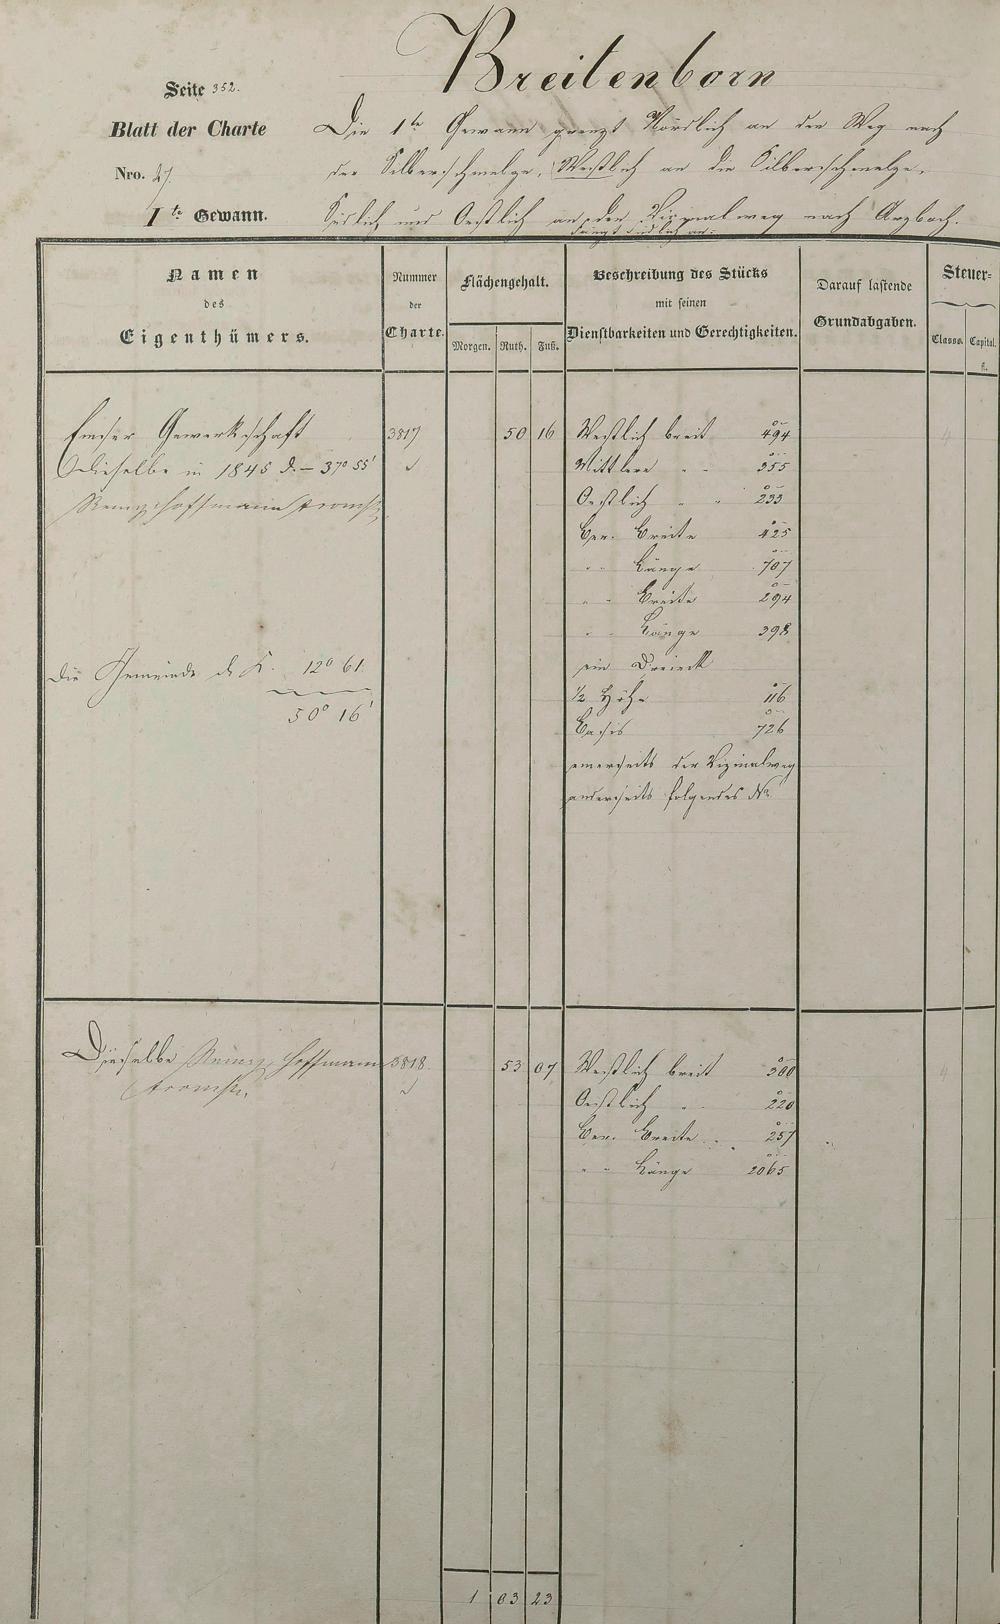 Breitenborn
Seite 352.
Blatt der Charte
Nro. 47.
1te Gewann.
Die 1te Gewann grenzt Nördlich an den Weg nach
der Silberschmelze, Westlich an die Silberschmelze,
Südlich und Oestlich an den Vizinalweg nach Arzbach.
Fängt südlich an:
Namen
des
Eigenthümers.
Nummer
der
Charte.
Flächengehalt.
Morgen. Ruth. Fuß.
Beschreibung des Stücks
mit seinen
Dienstbarkeiten und Gerechtigkeiten.
Darauf lastende
Grundabgaben.
Steuer=
Classe. Capital.
fl.
Emser Gewerkschaft 3817 50 16 Westlich breit 494 4
Dieselbe in 1845 d. – 37° 55' Mittlere " " 355
Remy, Hoffmann Oestlich " " 233
Ger. Breite 425
" " Länge 707
" " Breite 294
" " Länge 398
Die Gemeinde d. K. 12° 61 ein Dreieck
50° 16' 1/2 Höhe 116
Basis 726
einerseits der Vizinalweg
anderseits folgendes No.
Dieselbe Remy, Hoffmann 3818 53 07 Westlich breit 300 4
Oestlich " 220
Ger. Breite 257
" " Länge 2065
1 03 23